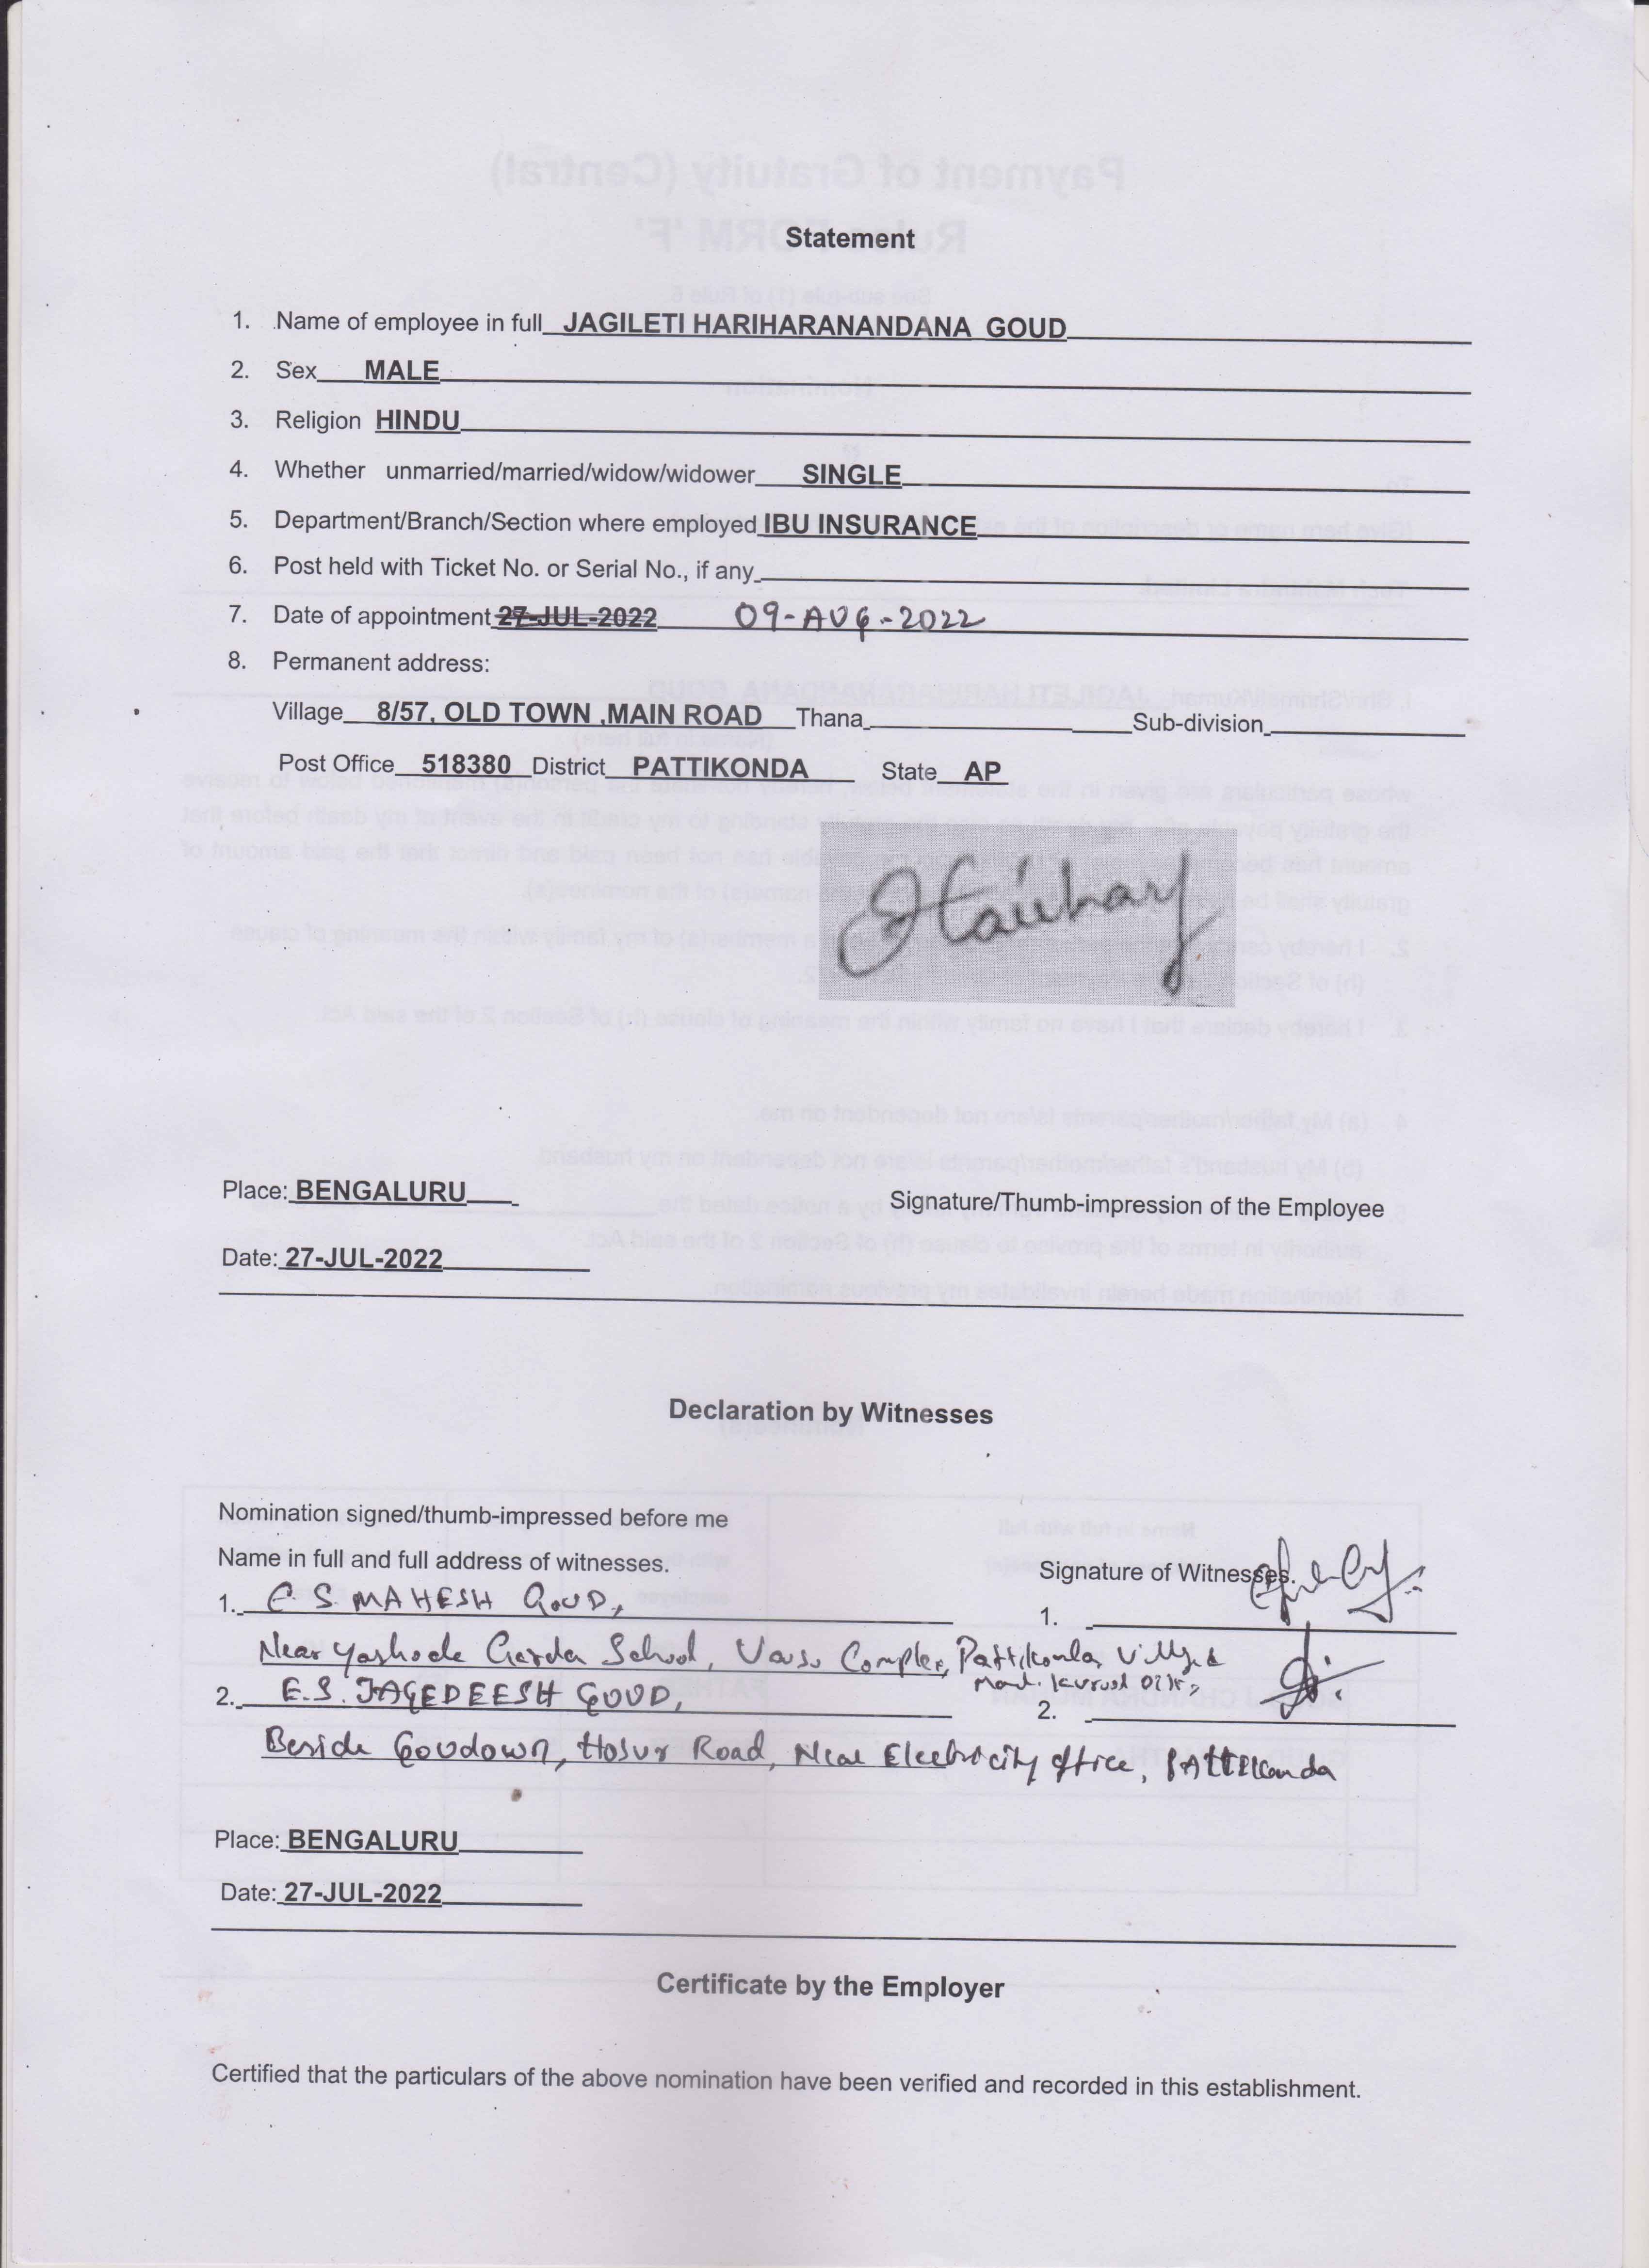 Statement
1. Name of employee in full JAGILETI HARIHARANANDANA GOUD
2. Sex MALE
3. Religion HINDU
4. Whether unmarried/married/widow/widower SINGLE
5. Department/Branch/Section where employed IBU INSURANCE
6. Post held with Ticket No. or Serial No., if any
7. Date of appointment 27-JUL-2022 09-AUG-2022
8. Permanent address:
Village 8/57, OLD TOWN ,MAIN ROAD Thana Sub-division
Post Office 518380 District PATTIKONDA State AP
Place: BENGALURU Signature/Thumb-impression of the Employee
Date: 27-JUL-2022
Declaration by Witnesses
Nomination signed/thumb-impressed before me
Name in full and full address of witnesses.
Signature of Witnesses.
1. E. S. MAHESH GOUD, 1.
Near School, Complex, Pattikonda
2. E.S. JAGEDEESH GOUD, 2.
Beside Goudown, Hosur Road, Near Electricity office, PAttikonda
Place: BENGALURU
Date: 27-JUL-2022
Certificate by the Employer
Certified that the particulars of the above nomination have been verified and recorded in this establishment.